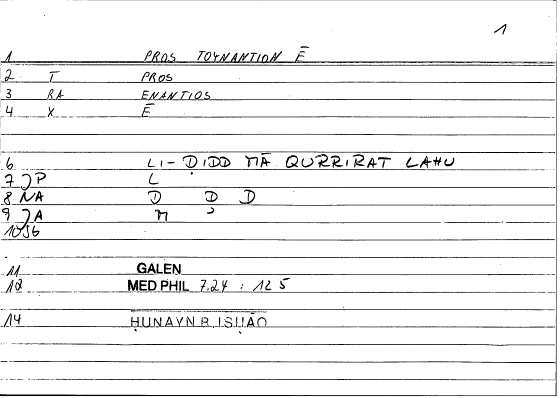 1
1 PROS TOYNANTION Ē
2 T PROS
3 RA ENANTIOS
4 X Ē
6 LI-ḌIDD MĀ QURRIRAT LAHU
7 JP L
8 NA Ḍ D D
9 JA M
10 J6
11 GALEN
12 MED PHIL 7.24 : 12 5
14 ḤUNAYN B. ISḤĀQ